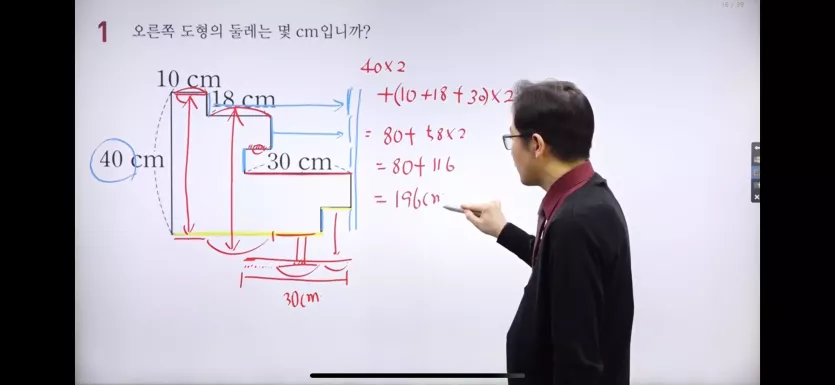 14 / 39
1 오른쪽 도형의 둘레는 몇 cm입니까?
40×2
10 cm
18 cm
+(10+18+30)×2
= 80+58×2
40 cm
30 cm
= 80+116
= 196cm
30cm